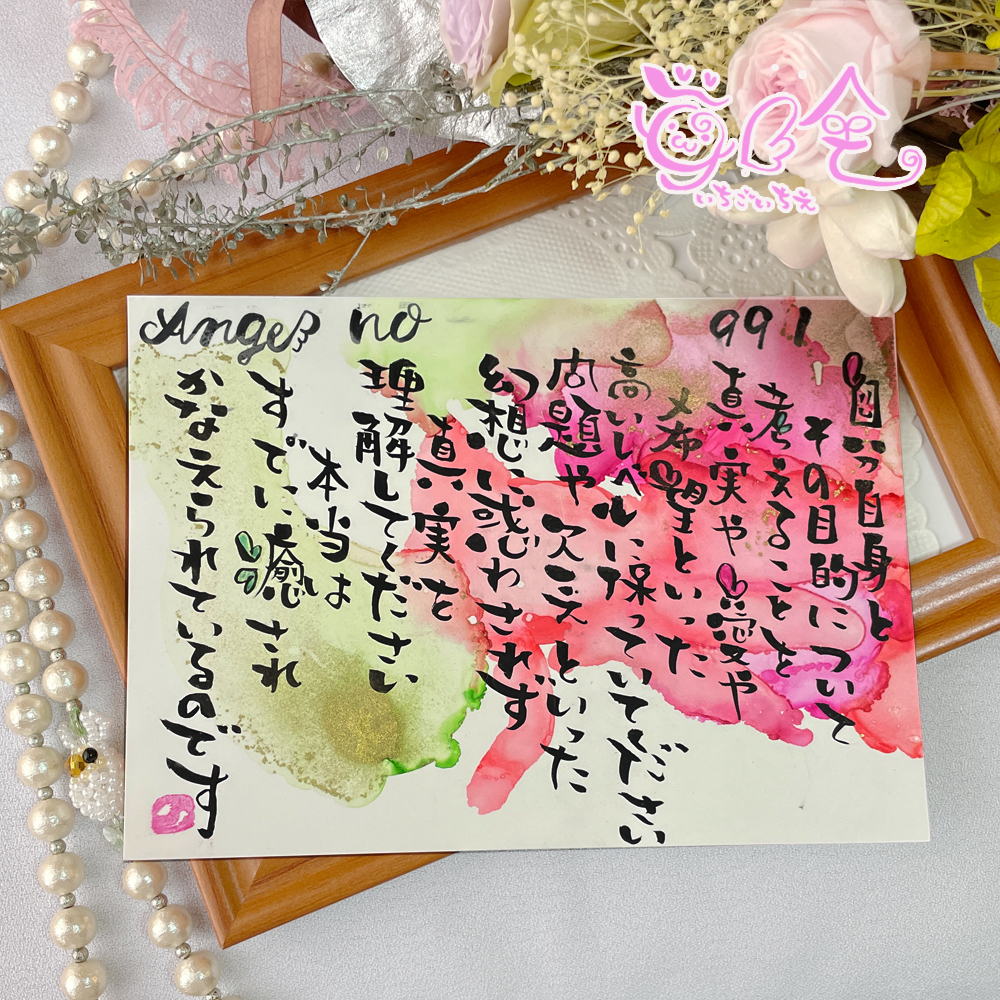 Angel no 991
自分自身と
その目的について
考えることを
真実や愛や
希望といった
高いレベルに保っていてださい
問題や欠乏といった
幻想に惑わされず
真実を
理解してください
本当は
すでに癒され
かなえられているのです
いちごいちえ